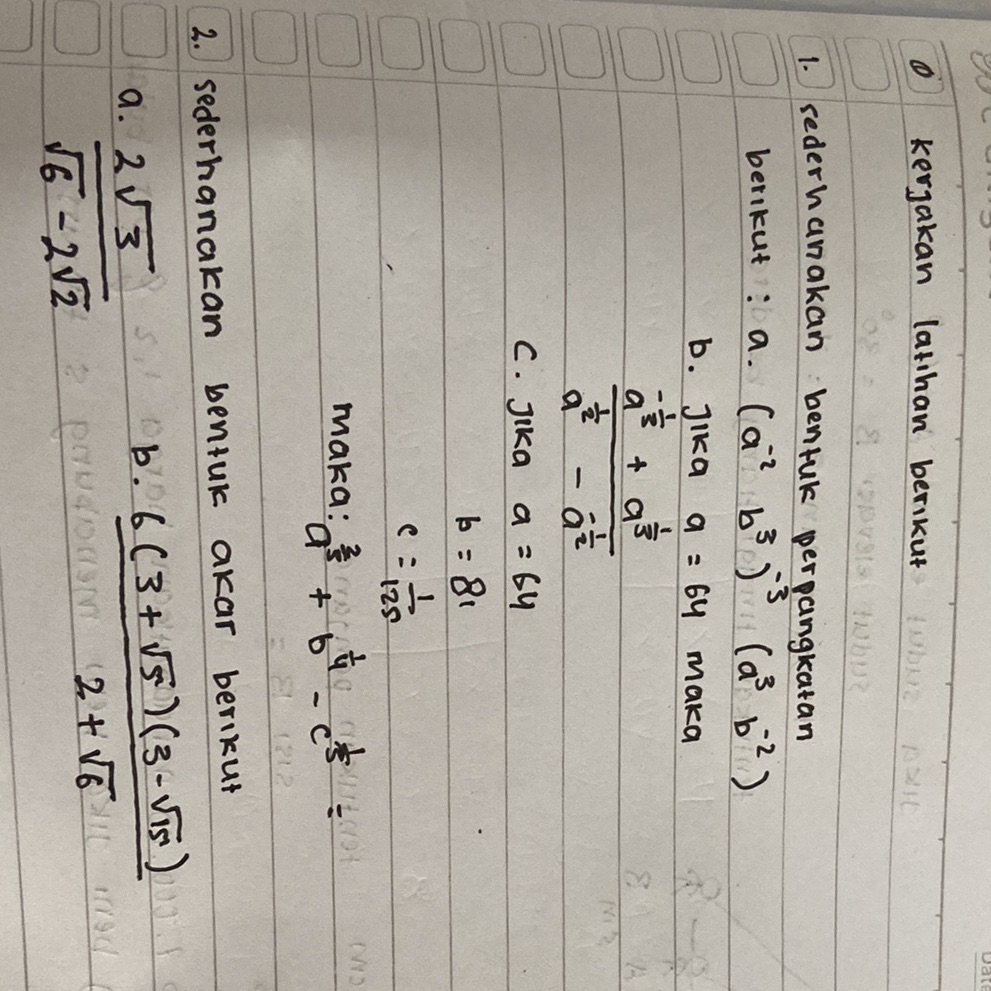 kerjakan latihan berikut
1. sederhanakan bentuk perpangkatan
berikut : a. (a⁻² b³)⁻³ (a³ b⁻²)
b. Jika a = 64 maka
a^(-1/3) + a^(1/3)
a^(1/2) - a^(-1/2)
c. Jika a = 64
b = 81
c = 1/125
maka: a^(2/3) + b^(1/4) - c^(1/3) =
2. sederhanakan bentuk akar berikut
a. 2√3 b. 6(3+√5)(3-√5)
√6 - 2√2 2+√6